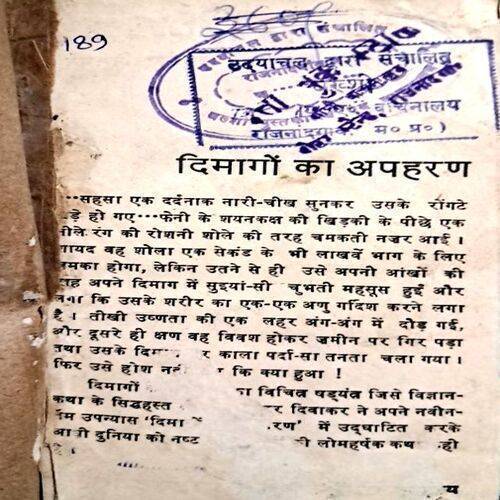 189
उदयाचल द्वारा संचालित
वाचनालय
राजनांदगांव म० प्र०)
दिमागों का अपहरण
...सहसा एक दर्दनाक नारी-चीख सुनकर उसके रोंगटे
ड़े हो गए...फेनी के शयनकक्ष की खिड़की के पीछे एक
ीले रंग की रोशनी शोले की तरह चमकती नजर आई ।
ायद वह शोला एक सेकंड के भी लाखवें भाग के लिए
मका होगा, लेकिन उतने से ही उसे अपनी आंखों की
ाह अपने दिमाग में सुइयां-सी चुभती महसूस हुईं और
गा कि उसके शरीर का एक-एक अणु गर्दिश करने लगा
है । तीखी उष्णता की एक लहर अंग-अंग में दौड़ गई,
और दूसरे ही क्षण वह विवश होकर ज़मीन पर गिर पड़ा
तथा उसके दि काला पर्दा-सा तनता चला गया ।
फिर उसे होश न कि क्या हुआ !
दिमागों ा विचित्र षड्यंत्र जिसे विज्ञान-
कथा के सिद्धहस्त र दिवाकर ने अपने नवीन-
म उपन्यास 'दिमा रण' में उद्घाटित करके
दुनिया को नष्ट ी लोमहर्षक कथ ही
य